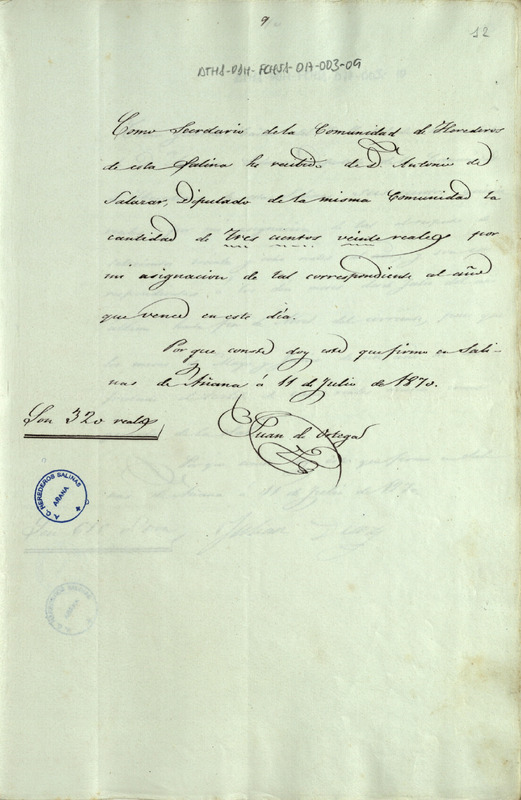 9
12
ATHA-DAH-FCHSA-017-003-09
Como Secretario de la Comunidad de Herederos
de esta Salina he recibido de D. Antonio de
Salazar, Diputado de la misma Comunidad la
cantidad de tres cientos veinte reales por
mi asignacion de tal correspondiente al año
que vence en este dia.
Por que conste doy este que firmo en Sali-
nas de Añana á 11 de Julio de 1870.
Son 320 reales
Juan de Ortega
A. C. HEREDEROS SALINAS
AÑANA